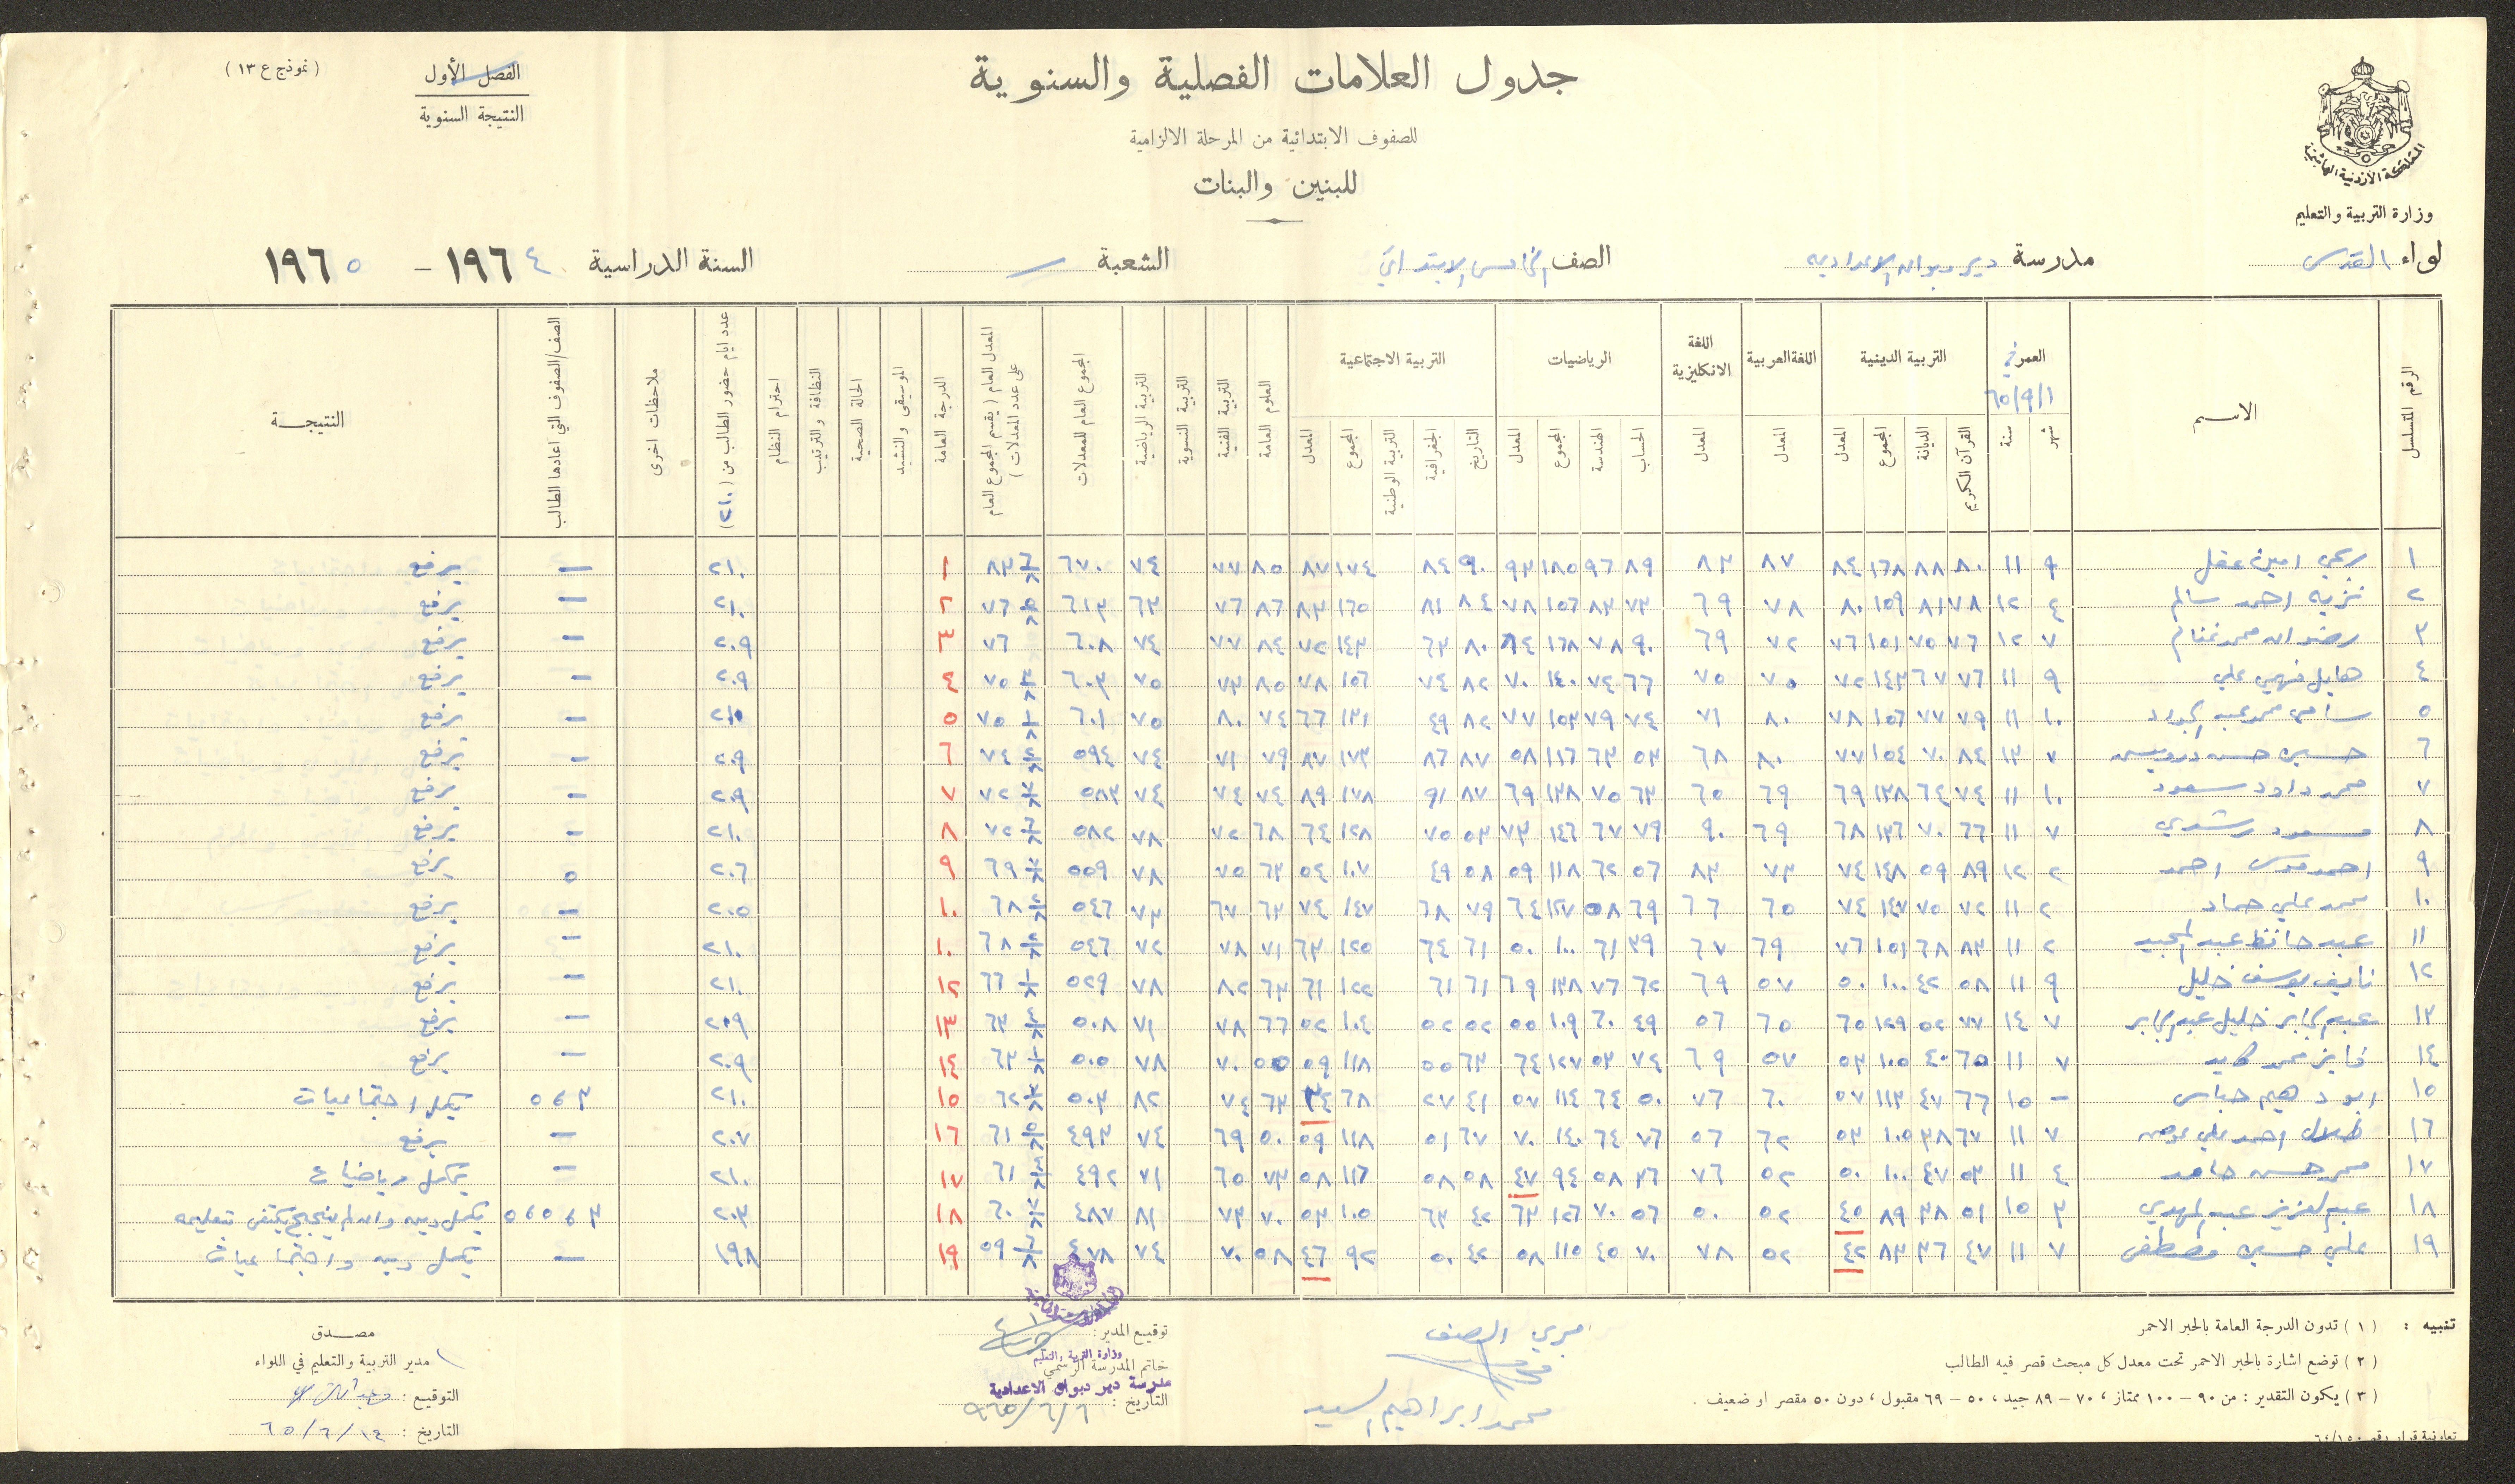 جدول العلامات الفصلية والسنوية
للصفوف الابتدائية من المرحلة الالزامية
للبنين والبنات
المملكة الأردنية الهاشمية
وزارة التربية والتعليم
الفصل الأول
النتيجة السنوية
( نموذج ع ١٣ )
لواء القدس مدرسة دير دبوان الاعدادية الصف الخامس الابتدائي الشعبة السنة الدراسية ١٩٦٤ - ١٩٦٥
الرقم المتسلسل الاسم العمر في ١/٩/٦٥ التربية الدينية اللغة العربية اللغة الانكليزية الرياضيات التربية الاجتماعية العلوم العامة التربية الفنية التربية النسوية التربية الرياضية المجموع العام للمعدلات المعدل العام ( يقسم المجموع العام على عدد المعدلات ) الدرجة العامة الموسيقى والنشيد الحالة الصحية النظافة والترتيب احترام النظام عدد ايام حضور الطالب من (٢١٠) ملاحظات اخرى الصف/الصفوف التي اعادها الطالب النتيجـــة
شهر سنة القرآن الكريم الديانة المجموع المعدل المعدل المعدل الحساب الهندسة المجموع المعدل التاريخ الجغرافية التربية الوطنية المجموع المعدل
١ ربحي امين عقل ٩ ١١ ٨٠ ٨٨ ١٦٨ ٨٤ ٨٧ ٨٣ ٨٩ ٩٦ ١٨٥ ٩٣ ٩٠ ٨٤ ١٧٤ ٨٧ ٨٥ ٧٧ ٧٤ ٦٧٠ ٨٣ ١ ٢١٠ — يرفع
٢ نزيه احمد سالم ٤ ١٢ ٧٨ ٨١ ١٥٩ ٨٠ ٧٨ ٦٩ ٧٣ ٨٣ ١٥٦ ٧٨ ٨٤ ٨١ ١٦٥ ٨٣ ٨٦ ٧٦ ٦٣ ٦١٣ ٧٦ ٢ ٢١٠ — يرفع
٣ رضوان محمد غنام ٧ ١٢ ٧٦ ٧٥ ١٥١ ٧٦ ٧٢ ٦٩ ٩٠ ٧٨ ١٦٨ ٨٤ ٨٠ ٦٣ ١٤٣ ٧٢ ٨٤ ٧٧ ٧٤ ٦٠٨ ٧٦ ٣ ٢٠٩ — يرفع
٤ هايل فهمي علي ٩ ١١ ٧٦ ٦٧ ١٤٣ ٧٢ ٧٥ ٧٥ ٦٦ ٧٤ ١٤٠ ٧٠ ٨٢ ٧٤ ١٥٦ ٧٨ ٨٥ ٧٣ ٧٥ ٦٠٣ ٧٥ ٤ ٢٠٩ — يرفع
٥ سامي محمد عبد الجواد ١٠ ١١ ٧٩ ٧٧ ١٥٦ ٧٨ ٨٠ ٧١ ٧٤ ٧٩ ١٥٣ ٧٧ ٨٢ ٤٩ ١٣١ ٦٦ ٧٤ ٨٠ ٧٥ ٦٠١ ٧٥ ٥ ٢١٠ — يرفع
٦ حسين حسن درويش ٧ ١٣ ٨٤ ٧٠ ١٥٤ ٧٧ ٨٠ ٦٨ ٥٣ ٦٣ ١١٦ ٥٨ ٨٧ ٨٦ ١٧٣ ٨٧ ٧٩ ٧١ ٧٤ ٥٩٤ ٧٤ ٦ ٢٠٩ — يرفع
٧ محمد داود سعود ١٠ ١١ ٧٤ ٦٤ ١٣٨ ٦٩ ٦٩ ٦٥ ٦٣ ٧٥ ١٣٨ ٦٩ ٨٧ ٩١ ١٧٨ ٨٩ ٧٤ ٧٤ ٧٤ ٥٨٣ ٧٢ ٧ ٢٠٩ — يرفع
٨ مسعود رشدي ٧ ١١ ٦٦ ٧٠ ١٣٦ ٦٨ ٦٩ ٩٠ ٧٩ ٦٧ ١٤٦ ٧٣ ٥٣ ٧٥ ١٢٨ ٦٤ ٦٨ ٧٢ ٧٨ ٥٨٢ ٧٢ ٨ ٢١٠ — يرفع
٩ احمد موسى احمد ٢ ١٢ ٨٩ ٥٩ ١٤٨ ٧٤ ٧٣ ٨٣ ٥٦ ٦٢ ١١٨ ٥٩ ٥٨ ٤٩ ١٠٧ ٥٤ ٦٣ ٧٥ ٧٨ ٥٥٩ ٦٩ ٩ ٢٠٦ ٥ يرفع
١٠ محمد علي حماد ٢ ١١ ٧٢ ٧٥ ١٤٧ ٧٤ ٦٥ ٦٦ ٦٩ ٥٨ ١٢٧ ٦٤ ٧٩ ٦٨ ١٤٧ ٧٤ ٦٣ ٦٧ ٧٣ ٥٤٦ ٦٨ ١٠ ٢٠٥ — يرفع
١١ عبد حافظ عبد المجيد ٢ ١١ ٨٣ ٦٨ ١٥١ ٧٦ ٦٩ ٦٧ ٣٩ ٦١ ١٠٠ ٥٠ ٦١ ٦٤ ١٢٥ ٦٣ ٧١ ٧٨ ٧٢ ٥٤٦ ٦٨ ١٠ ٢١٠ — يرفع
١٢ نايف يوسف خليل ٩ ١١ ٥٨ ٤٢ ١٠٠ ٥٠ ٥٧ ٦٩ ٦٢ ٧٦ ١٣٨ ٦٩ ٦١ ٦١ ١٢٢ ٦١ ٦٣ ٨٢ ٧٨ ٥٢٩ ٦٦ ١٢ ٢١٠ — يرفع
١٣ عبد الجابر خليل عبد الجابر ٧ ١٤ ٧٧ ٥٢ ١٢٩ ٦٥ ٦٥ ٥٦ ٤٩ ٦٠ ١٠٩ ٥٥ ٥٢ ٥٢ ١٠٤ ٥٢ ٦٦ ٧٨ ٧١ ٥٠٨ ٦٣ ١٣ ٢٠٩ — يرفع
١٤ فايز محمد كايد ٧ ١١ ٦٥ ٤٠ ١٠٥ ٥٣ ٥٧ ٦٩ ٧٤ ٥٣ ١٢٧ ٦٤ ٦٣ ٥٥ ١١٨ ٥٩ ٥٥ ٧٠ ٧٨ ٥٠٥ ٦٣ ١٤ ٢٠٩ — يرفع
١٥ - ١٥ ٦٦ ٤٧ ١١٣ ٥٧ ٦٠ ٧٦ ٥٠ ٦٤ ١١٤ ٥٧ ٤١ ٢٧ ٦٨ ٣٤ ٦٣ ٧٤ ٨٢ ٥٠٣ ٦٢ ١٥ ٢١٠ ٣ ، ٥ يكمل اجتماعيات
١٦ طلال احمد علي عوض ٧ ١١ ٦٧ ٣٨ ١٠٥ ٥٣ ٦٢ ٥٦ ٧٦ ٦٤ ١٤٠ ٧٠ ٦٧ ٥١ ١١٨ ٥٩ ٥٠ ٦٩ ٧٤ ٤٩٣ ٦١ ١٦ ٢٠٧ — يرفع
١٧ محمد حسن حامد ٤ ١١ ٥٣ ٤٧ ١٠٠ ٥٠ ٥٢ ٧٦ ٣٦ ٥٨ ٩٤ ٤٧ ٥٨ ٥٨ ١١٦ ٥٨ ٧٣ ٦٥ ٧١ ٤٩٢ ٦١ ١٧ ٢١٠ — يكمل رياضيات
١٨ عبد العزيز عبد المهدي ٣ ١٥ ٥١ ٣٨ ٨٩ ٤٥ ٥٢ ٥٠ ٥٦ ٧٠ ١٢٦ ٦٣ ٤٢ ٦٣ ١٠٥ ٥٣ ٧٠ ٧٣ ٨١ ٤٨٧ ٦٠ ١٨ ٢٠٣ ٣ ، ٥ ، ٥ يكمل دين وان لم ينجح يكتفى بتعليمه
١٩ علي حسين مصطفى ٧ ١١ ٤٧ ٣٦ ٨٣ ٤٢ ٥٢ ٧٨ ٧٠ ٤٥ ١١٥ ٥٨ ٤٢ ٥٠ ٩٢ ٤٦ ٥٨ ٧٠ ٧٤ ٤٧٨ ٥٩ ١٩ ١٩٨ — يكمل دين واجتماعيات
تنبيه : ( ١ ) تدون الدرجة العامة بالحبر الاحمر
( ٢ ) توضع اشارة بالحبر الاحمر تحت معدل كل مبحث قصر فيه الطالب
( ٣ ) يكون التقدير : من ٩٠ - ١٠٠ ممتاز ، ٧٠ - ٨٩ جيد ، ٥٠ - ٦٩ مقبول ، دون ٥٠ مقصر او ضعيف .
مربي الصف
محمد ابراهيم السيد
توقيع المدير :
وزارة التربية والتعليم
خاتم المدرسة الرسمي
مدرسة دير دبوان الاعدادية
التاريخ : ٦/٦/٩٦٥
مصـــدق
مدير التربية والتعليم في اللواء
التوقيع :
التاريخ : ١٤/٦/٦٥